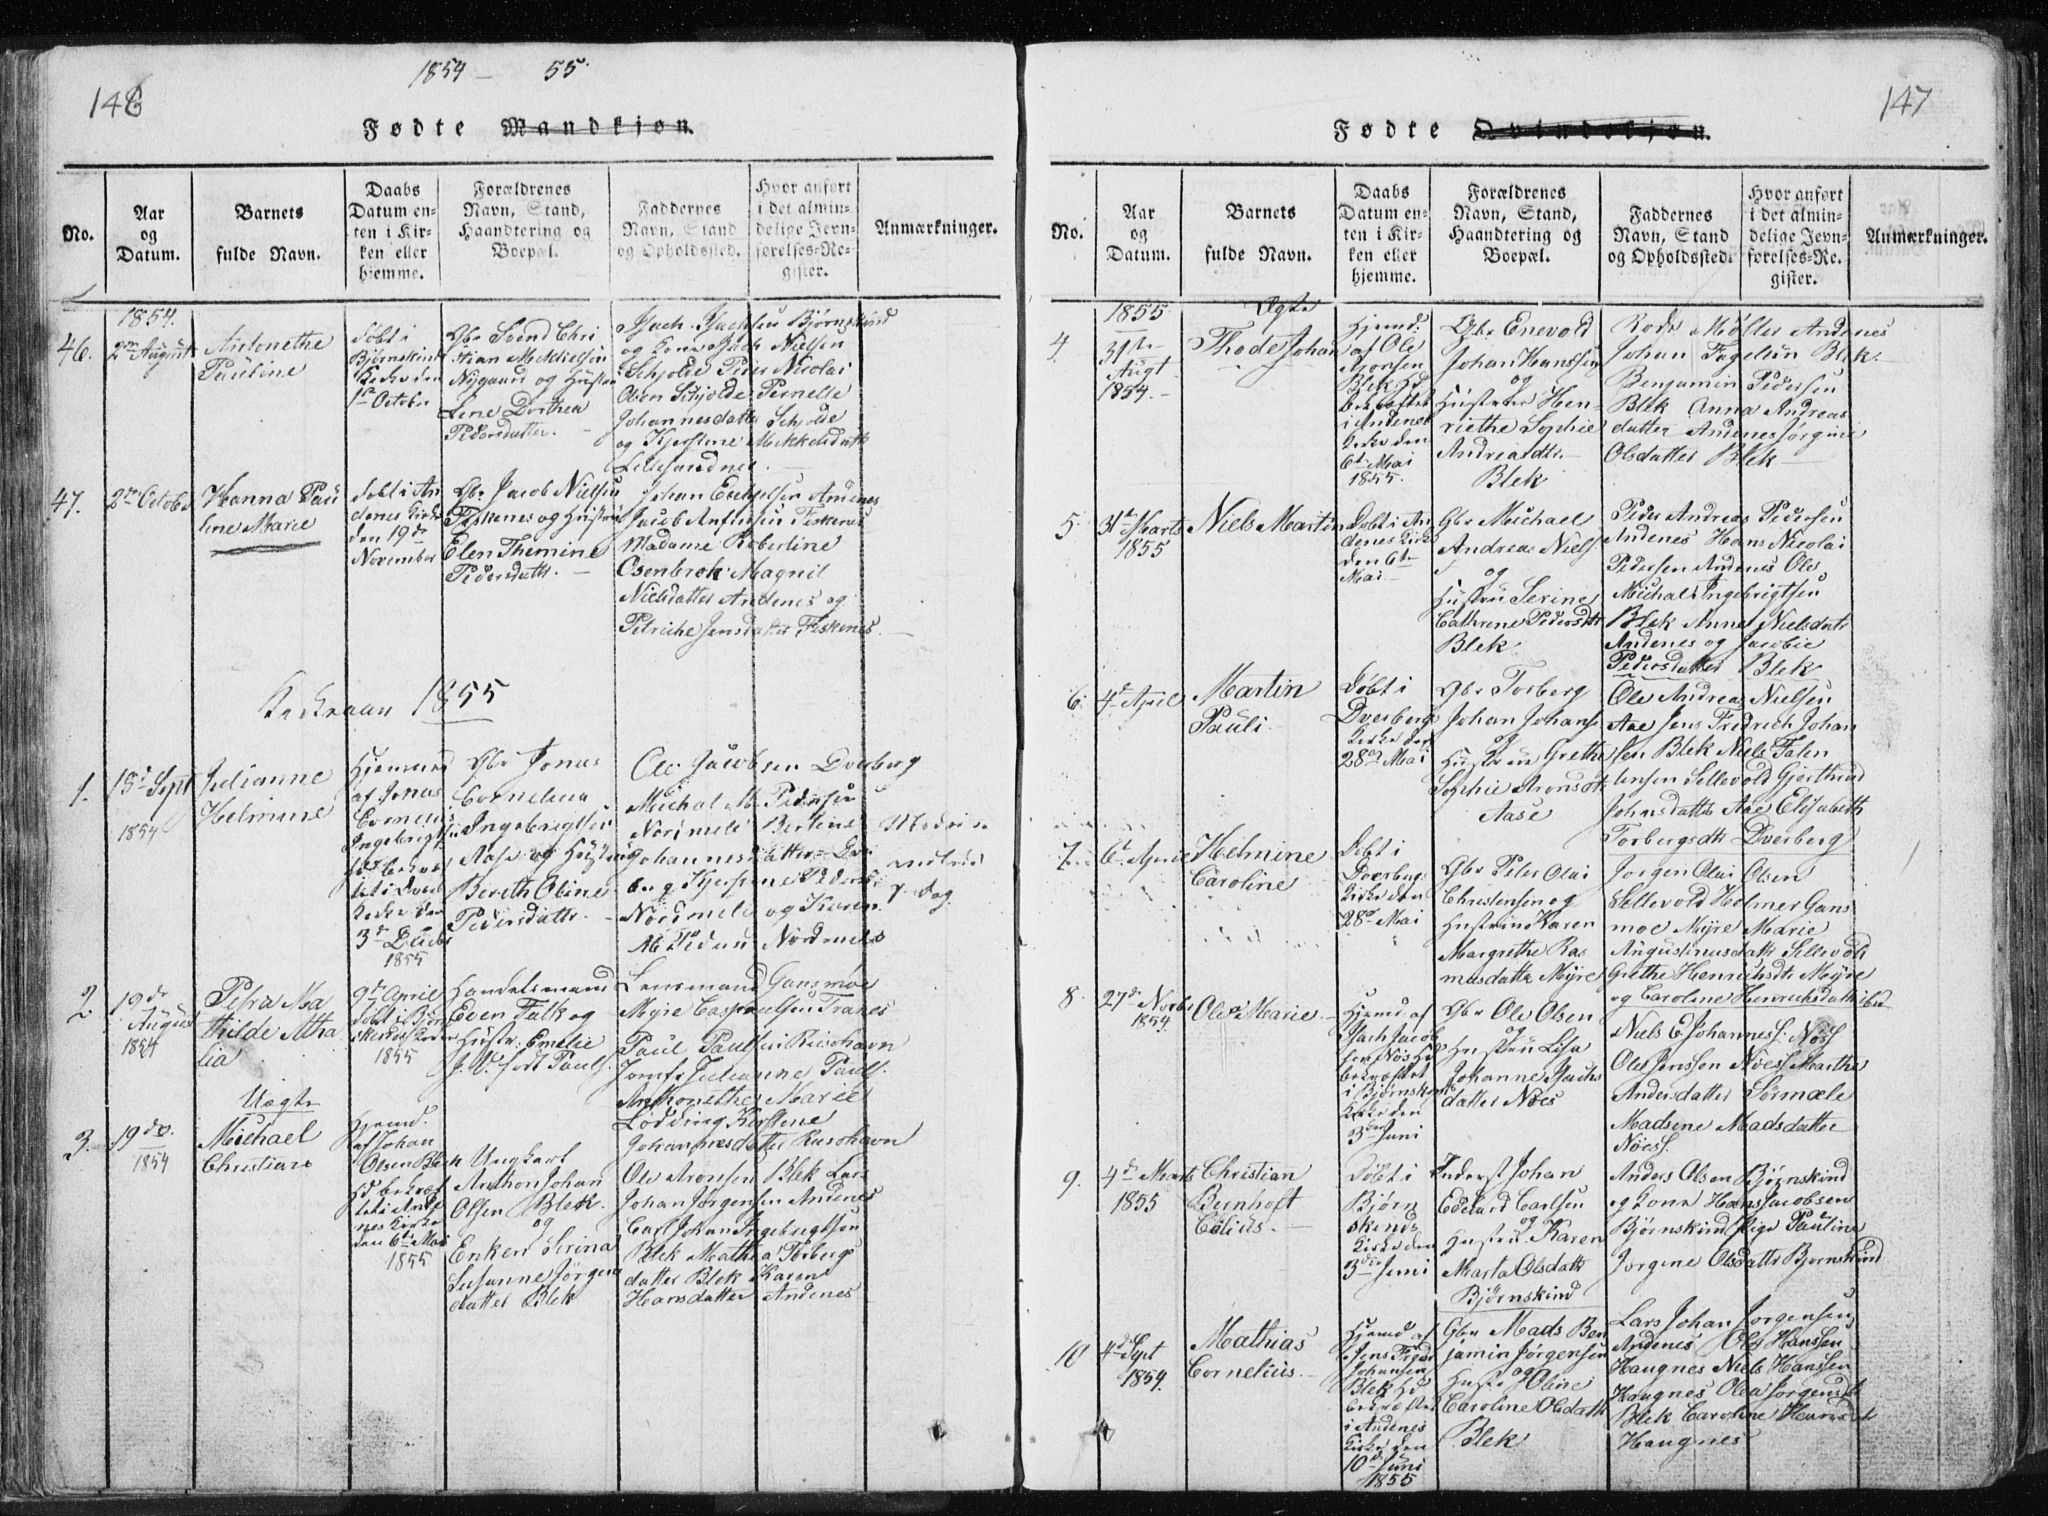 146
1854 — 55.
Fødte Mandkjøn.
No.
Aar
og
Datum.
Barnets
fulde Navn.
Daabs
Datum en-
ten i Kir-
ken eller
hjemme.
Forældrenes
Navn, Stand,
Haandtering og
Boepæl.
Faddernes
Navn, Stand
og Opholdssted.
Hvor anført
i det almin-
delige Jevn-
førelses-Re-
gister.
Anmærkninger.
1854.
46.
2den August
Antonethe
Pauline
Døbt i
Bjørnskind
Kirke den
1ste October
Gbr Svend Chri
stian Mikkelsen
Nygaard og Hustru
Lene Dorthea
Pedersdatter. —
Isach Isachsen Bjørnskind
og Kone Nielsen
Skjolde Peder Nicolai
Olsen Skjolde Pernelle
Johannesdatter Skjolde
og Kjerstine Mikkelsdatter
47.
2den October
Hanna Pau
line Marie
Døbt i An
denes Kirke
den 19de
November
Gbr Jacob Nielsen
Fiskenes og Hustru
Elen Themine
Pedersdatter. —
Johan Andenes
Jacob Fiskenes
Madame Robertine
Osenbrok Magnil
Nielsdatter Andenes og
Petriche Jensdatter Fiskenes.
1855
1.
1854
Julianne
Helmine
Hjemmed
af Jonas
Cornelius
Ingebrigtsen
Kirke den
3de
1855
Gbr Jonas
Cornelius
Ingebrigtsen
Aase og Hustru
Bereth Oline
Pedersdatter. —
Ole Jacobsen Dverberg
Michal M. Pedersen
Nordmele
Johannesdatter Dver
berg
Nordmele og Karen
Nordmele
Dag
2.
19de
August
1854
Petra Ma
thilde Atha
lia
9de April
Døbt i Bjørn
skinds Kirke
1855
Handelsmand
Even Falk og
Hustr. Emelie
J. V. født Pauls.
Lensmand Gansmøe
Myre Casp Paulsen Tranes
Paul Paulsen Risøehavn
Jomf. Julianne Pauls.
Anthonethe Marie
Lødding Kirstine
Johannesdatter Risøehavn
Uægte
3.
19 do.
1854
Michael
Christian
Hjemd.
af Johan
Olsen Blek
den 6te Mai
1855
Ungkarl
Anthon Johan
Olsen Blek.
og
Enken Serina
Susanne Jørgens
datter Blek
Ole Aronsen Blek Lars
Johan Jørgensen Andenes
Carl Johan Ingebrigtsen
Blek Mathea Torbergs
datter Blek Karen
Hansdatter Andenes
147
Fødte Qvindekjøn.
No.
Aar
og
Datum.
Barnets
fulde Navn.
Daabs
Datum en-
ten i Kir-
ken eller
hjemme.
Forældrenes
Navn, Stand,
Haandtering og
Boepæl.
Faddernes
Navn, Stand
og Opholdssted.
Hvor anført
i det almin-
delige Jevn-
førelses-Re-
gister.
Anmærkninger.
1855
Ægte
4
31te
Augt
1854. —
Thode Johan
Hjemd:
af Ole
Aronsen
Blek Hd
bekræftet
i Andenes
Kirke den
6te Mai
1855.
Gbr Enevold
Johan Hanssen
og
Hustrue Hen-
riethe Sophie
Andreasdtr.
Blek
Møller Andenes
Johan Fagelun Blek.
Benjamin Pedersen
Blek Anna Andreas
datter Andenes Jørgine
Olsdatter Blek —
5
31te Marts
1855
Niels Martin
Døbt i An
denes Kirke
den 6te
Mai —
Gbr Michael
Andreas Niels
og
Hustru Serine
Cathrine Pedersdtr
Blek
Peder Andreas Pedersen
Andenes Hans Nicolai
Pedersen Andenes Ole
Michal Ingebrigtsen
Blek Anne Nielsdatr
Andenes og Jacobie
Pedersdatter Blek
6.
4de April
Martin
Pauli
Døbt i
Dverberg
Kirke den
28de Mai
Gbr Torberg
Johan Johans
og
Hustrue Grethe
Sophie Aronsdtr
Aase
Ole Andreas Nielsen
Aae Jens Fredrich Johan
sen Blek Niels Falen
Jensen Sellevold Gjerthrud
Johnsdatter Aae Elisabeth
Torbergsdtr Dverberg
7.
6te April
Helmine
Caroline
Døbt i
Dverberg
Kirke den
28de Mai
Gbr Peter Olai
Christensen og
Hustrue Karen
Margrethe Ras
musdatter Myre
Jørgen Olai Olsen
Sellevold Holmer Gans
moe Myre Marie
Augustinusdatr Sellevold
Grethe Henrichsdtr Myre
og Caroline Henrichsdatter ibd
8
27de Novbr
1854.
Ole Marie —
Hjemd af
Isach Jacob
sen Nøis Hd
bekræftet
i Bjørnskind
Kirke den
3die Juni
Gbr Ole Olsen
og
Hustru Lisa
Johanne Isachs
datter Nøes
Niels E. Johanness. Nøss
Ole Jenssen Nøess Marthe
Andersdatter Sørmæle
Madsine Madsdatter
Nøess.
9.
4de Marts
1855
Christian
Bernhoft
Døbt i
Bjørn
skinds
Kirke den
3die Juni
Inderst Johan
Edevard Carlsen
og
Hustru. Karen
Marta Olsdatr
Bjørnskind
Anders Olsen Bjørnskind
og Kone Hans Jacobsen
Bjørnskind Pige Pauline
Jørgine Olsdatter Bjørnskind
10
4de Sept
1854.
Mathias
Cornelius. —
Hjemd af
Jens Fred
Johansen
Blek Hd
bekræftet
i Andenes
Kirke den
10de Juni
1855
Gbr Mads Ben
jamin Jørgensen
og
Hustr Oline
Caroline Olsdatr
Blek
Lars Johan Jørgensen
Andenes Ole Hanssen
Haugnes Niels Hanssen
Haugnes Olea Jørgensdtr
Blek Caroline
Haugnes